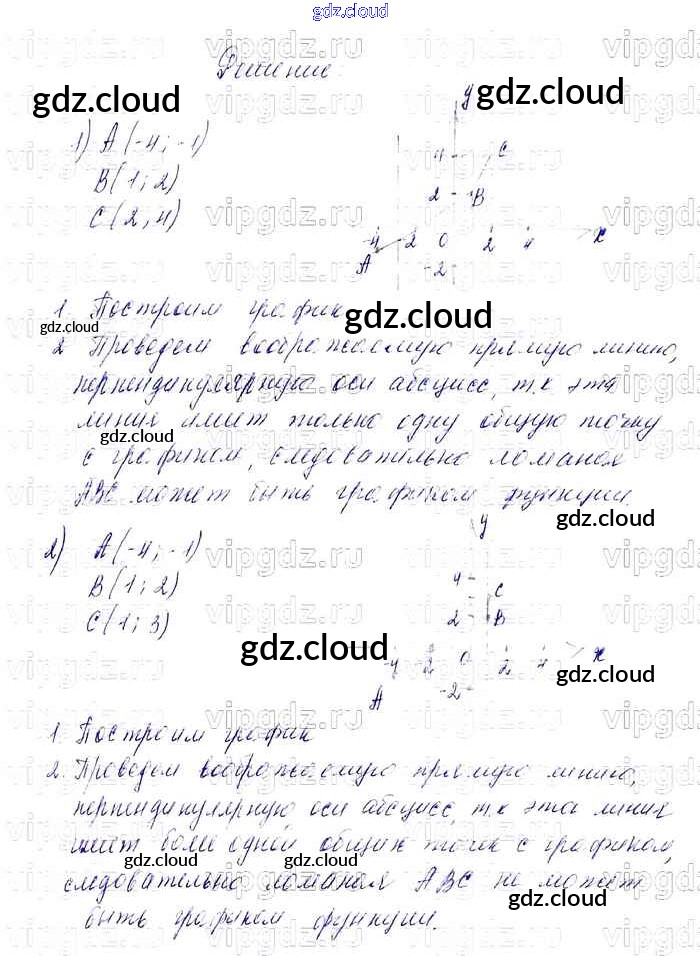 gdz.cloud
Решение:
gdz.cloud gdz.cloud
1) A(-4; -1)
B(1; 2)
C(2; 4)
y
4 C
2 B
-4 -2 0 2 4 x
A -2
1. Построим график
gdz.cloud gdz.cloud
2 Проведем воображаемую прямую линию,
перпендикулярную оси абсцисс, т.к эта
линия имеет только одну общую точку
gdz.cloud
с графиком, следовательно ломаная
ABC может быть графиком функции.
gdz.cloud
2) A(-4; -1)
B(1; 2)
C(1; 3)
y
4 C
2 B
-4 -2 0 2 4 x
A -2
gdz.cloud gdz.cloud
1. Построим график
2. Проведем воображаемую прямую линию,
перпендикулярную оси абсцисс, т.к эта линия
имеет более одной общих точек с графиком,
gdz.cloud gdz.cloud
следовательно ломаная ABC не может
gdz.cloud
быть графиком функции.